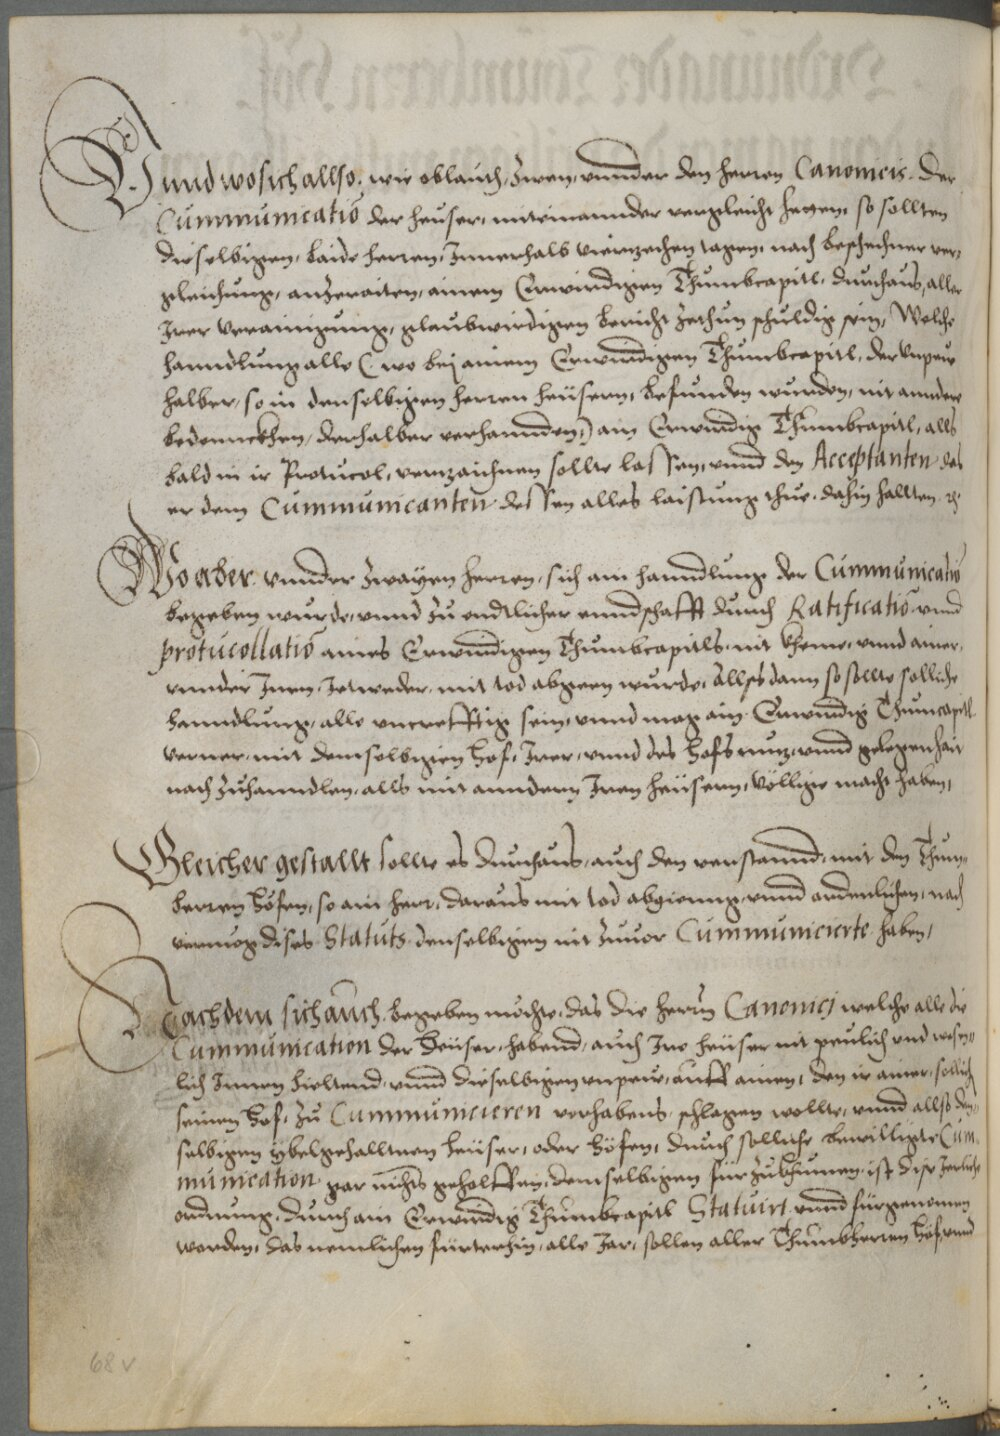 Unnd wo sich allso, wie oblauth, zwen, unnder den herren Canonicis, der
Cummunicatiō der heuser, miteinannder vergleicht hetten, so sollten
dieselbigen, baide herren, Innerhalb viertzechen tagen, nach beschechner ver-
gleichung, anzeraiten, ainem Erwirdigen Thumbcapitl, durchaus, aller
Irer verainigung, glaubwirdigen bericht zethun schuldig sein, Welche
hanndlung alle (wo bey ainem Erwirdigen Thumbcapitl, der unpew
halber, so in denselbigen herren heüsern, befunden wurden, nit annder
bedennckhen, derhalber verhannden,) ain Erwirdig Thumbcapitl, alls
bald in ir Protucol, vertzaichnen sollte lassen, unnd den Acceptanten des
er dem Cummunicanten dessen alles laistung thue, dahin hallten ꝛc.
Wo aber unnder zwayen herren, sich ain hanndlung der Cummunicatiō
begeben wurde, unnd zu endtlicher enndschafft durch Ratificatiō unnd
protucollatiō aines Erwirdigen Thumbcapitls nit kheme, unnd ainer,
unnder Inen, Jetweder, mit tod abgeen wurde, Allßdann so sollte solliche
hanndlung, alle uncrefftig sein, unnd mag ain Erwirdig Thumcapitl
verner, mit demselbigen Hof, Irer, unnd des Hofs nutz, unnd gelegenhait
nach zuhanndlen, alls mit anndern Iren heüsern, völlige macht haben,
Gleicher gestallt sollte es durchaus, auch den verstannd, mit den Thum-
herren Höfen, so ain herr, daraus mit tod abgienng, unnd ordenlichen, nach
vermög dises Statuts denselbigen nit zuuor Cummunicierte haben,
Nachdem sich auch begeben möchte, das die herrn Canonici welche alle die
Cummunication der Heüser, habend, auch Ire heüser nit peulich und wesen-
lich Innen hieltend, unnd dieselbigen unpew, auff ainen, den ir ainer, sollich
seinen Hof, zu Cummunicieren vorhabens, schlagen wollte, unnd allß den-
selbigen ybelgehalltnen heüser, oder höfen, durch solliche bewilligte Cum-
munication gar nichts geholffen, demselbigen fürzukhumen, ist dise Jerliche
ordnung, durch ain Erwirdig Thumbcapitl Statuirt unnd fürgenomen
worden, das nemlichen fürterhin, alle Jar, sollen aller Thumbherren höf, unnd
68 v